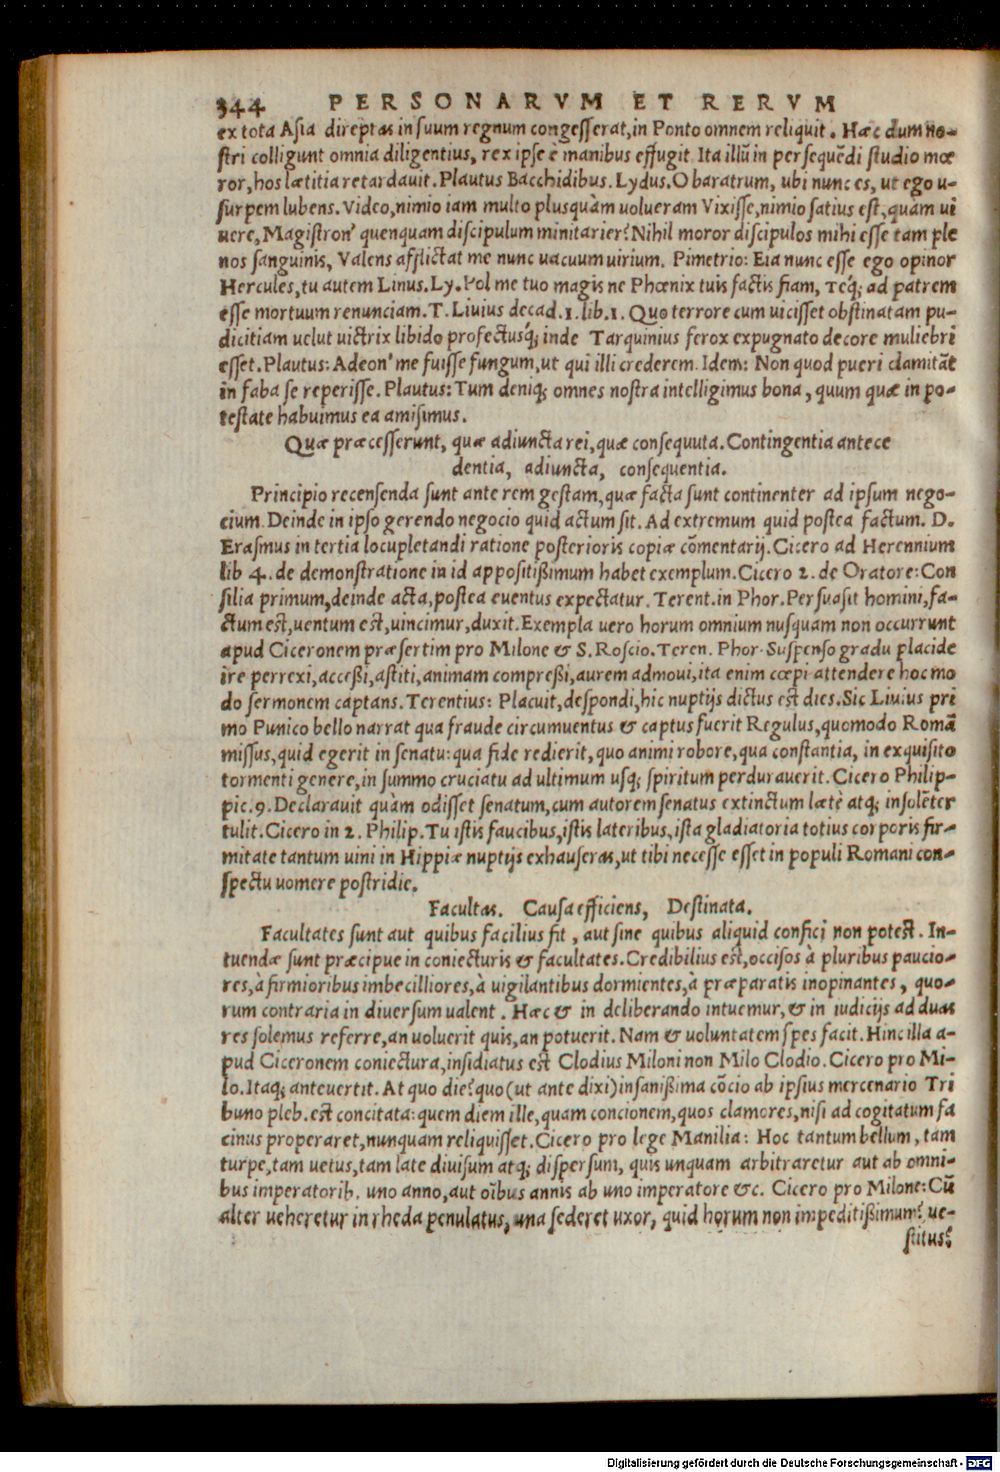 344 PERSONARVM ET RERVM
ex tota Asia direptas in suum regnum congesserat, in Ponto omnem reliquit. Hæc dum no-
stri colligunt omnia diligentius, rex ipse è manibus effugit Ita illũ in persequẽdi studio mœ
ror, hos lætitia retardauit. Plautus Bacchidibus. Lydus. O baratrum, ubi nunc es, ut ego u-
surpem lubens. Video, nimio iam multo plusquàm uolueram Vixisse, nimio satius est, quàm ui
uere, Magistron' quenquam discipulum minitarier? Nihil moror discipulos mihi esse tam ple
nos sanguinis, Valens afflictat me nunc uacuum uirium. Pimetrio: Eia nunc esse ego opinor
Hercules, tu autem Linus. Ly. Pol me tuo magis ne Phœnix tuis factis fiam, teq́; ad patrem
esse mortuum renunciam. T. Liuius decad. 1. lib. 1. Quo terrore cum uicisset obstinatam pu-
dicitiam uelut uictrix libido profectusq́; inde Tarquinius ferox expugnato decore muliebri
esset. Plautus: Adeon' me fuisse fungum, ut qui illi crederem. Idem: Non quod pueri clamitãt
in faba se reperisse. Plautus: Tum deniq; omnes nostra intelligimus bona, quum quæ in po-
testate habuimus ea amisimus.
Quæ præcesserunt, quæ adiuncta rei, quæ consequuta. Contingentia antece
dentia, adiuncta, consequentia.
Principio recensenda sunt ante rem gestam, quæ facta sunt continenter ad ipsum nego-
cium. Deinde in ipso gerendo negocio quid actum sit. Ad extremum quid postea factum. D.
Erasmus in tertia locupletandi ratione posterioris copiæ cõmentarij. Cicero ad Herennium
lib 4. de demonstratione in id appositißimum habet exemplum. Cicero 2. de Oratore: Con
silia primum, deinde acta, postea euentus expectatur. Terent. in Phor. Persuasit homini, fa-
ctum est, uentum est, uincimur, duxit. Exempla uero horum omnium nusquam non occurrunt
apud Ciceronem præsertim pro Milone & S. Roscio. Teren. Phor. Suspenso gradu placide
ire perrexi, acceßi, astiti, animam compreßi, aurem admoui, ita enim cœpi attendere hoc mo
do sermonem captans. Terentius: Placuit, despondi, hic nuptijs dictus est dies. Sic Liuius pri
mo Punico bello narrat qua fraude circumuentus & captus fuerit Regulus, quomodo Romã
missus, quid egerit in senatu: qua fide redierit, quo animi robore, qua constantia, in exquisito
tormenti genere, in summo cruciatu ad ultimum usq; spiritum perdurauerit. Cicero Philip-
pic. 9. Declarauit quàm odisset senatum, cum autorem senatus extinctum lætè atq; insolẽter
tulit. Cicero in 2. Philip. Tu istis faucibus, istis lateribus, ista gladiatoria totius corporis fir-
mitate tantum uini in Hippiæ nuptijs exhauseras, ut tibi necesse esset in populi Romani con-
spectu uomere postridie.
Facultas. Causa efficiens, Destinata.
Facultates sunt aut quibus facilius fit, aut sine quibus aliquid confici non potest. In-
tuendæ sunt præcipue in coniecturis & facultates. Credibilius est, occisos à pluribus paucio-
res, à firmioribus imbecilliores, à uigilantibus dormientes, à præparatis inopinantes, quo-
rum contraria in diuersum ualent. Hæc & in deliberando intuemur, & in iudicijs ad duas
res solemus referre, an uoluerit quis, an potuerit. Nam & uoluntatem spes facit. Hinc illa a-
pud Ciceronem coniectura, insidiatus est Clodius Miloni non Milo Clodio. Cicero pro Mi-
lo. Itaq; anteuertit. At quo die? quo (ut ante dixi) insanißima cõcio ab ipsius mercenario Tri
buno pleb. est concitata: quem diem ille, quam concionem, quos clamores, nisi ad cogitatum fa
cinus properaret, nunquam reliquisset. Cicero pro lege Manilia: Hoc tantum bellum, tam
turpe, tam uetus, tam late diuisum atq; dispersum, quis unquam arbitraretur aut ab omni-
bus imperatorib. uno anno, aut oĩbus annis ab uno imperatore &c. Cicero pro Milone: Cũ
alter ueheretur in rheda penulatus, una sederet uxor, quid horum non impeditißimum? ue-
stitus?
Digitalisierung gefördert durch die Deutsche Forschungsgemeinschaft - DFG